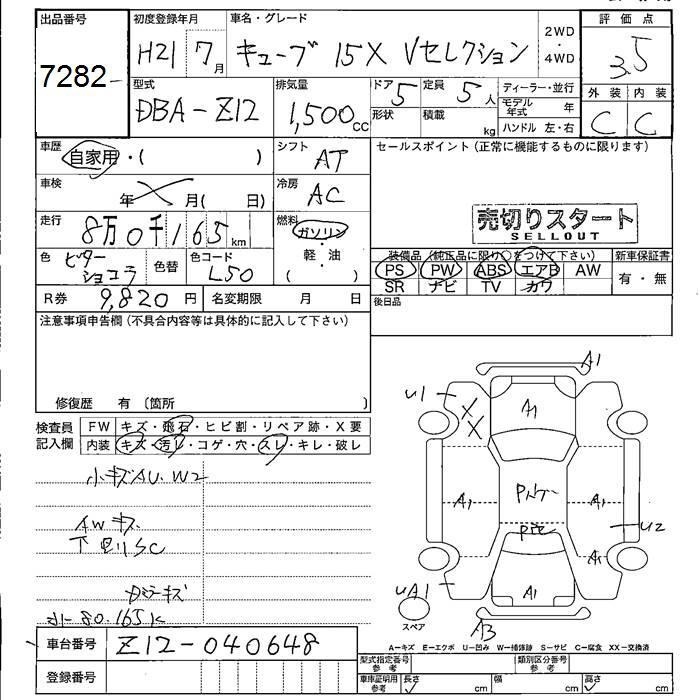 出品番号 初度登録年月 車名・グレード 評価点
7282 H21 7月 キューブ 15X Vセレクション 2WD・4WD 3.5
型式 排気量 ドア 定員 ディーラー・並行 外装 内装
DBA-Z12 1,500cc 5 5人 モデル年式 年 C C
形状 積載 kg ハンドル 左・右
車歴 自家用・( ) シフト AT セールスポイント(正常に機能するものに限ります)
車検 年 月( 日) 冷房 AC
走行 8万0千165km 燃料 ガソリン 売切りスタート
SELLOUT
色 ビターショコラ 色替 色コード L50 ・軽油 ( ) 装備品(純正品に限り○をつけて下さい) 新車保証書
PS PW ABS エアB AW 有・無
SR ナビ TV カワ
R券 9,820円 名変期限 月 日 後日品
注意事項申告欄(不具合内容等は具体的に記入して下さい)
修復歴 有〔箇所 〕
検査員 FW キズ・飛石・ヒビ割・リペア跡・X要
記入欄 内装 キズ・汚レ・コゲ・穴・スレ・キレ・破レ
小キズAU.W2
AWキズ
下回りSC
80.165K
A1
U1
XX
A1
A1
A1
U2
A1
UA1
A1
スペア
A3
A−キズ E−エクボ U−凹み W−補修跡 S−サビ C−腐食 XX−交換済
車台番号 Z12-040648
型式指定番号 参考 類別区分番号 参考
登録番号 車庫証明用 参考 長さ cm 幅 cm 高さ cm